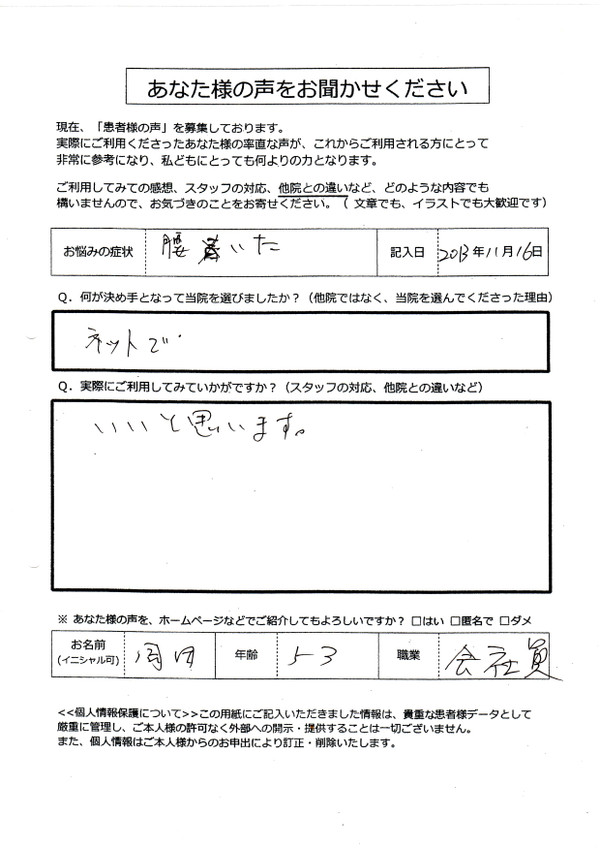 あなた様の声をお聞かせください
現在、「患者様の声」を募集しております。
実際にご利用くださったあなた様の率直な声が、これからご利用される方にとって
非常に参考になり、私どもにとっても何よりの力となります。
ご利用してみての感想、スタッフの対応、他院との違いなど、どのような内容でも
構いませんので、お気づきのことをお寄せください。（ 文章でも、イラストでも大歓迎です）
お悩みの症状 腰 いた 記入日 2013年11月16日
Q．何が決め手となって当院を選びましたか？（他院ではなく、当院を選んでくださった理由）
ネットで
Q．実際にご利用してみていかがですか？（スタッフの対応、他院との違いなど）
いいと思います。
※ あなた様の声を、ホームページなどでご紹介してもよろしいですか？ □はい □匿名で □ダメ
お名前
(イニシャル可) 年齢 53 職業 会社員
<<個人情報保護について>>この用紙にご記入いただきました情報は、貴重な患者様データとして
厳重に管理し、ご本人様の許可なく外部への開示・提供することは一切ございません。
また、個人情報はご本人様からのお申出により訂正・削除いたします。